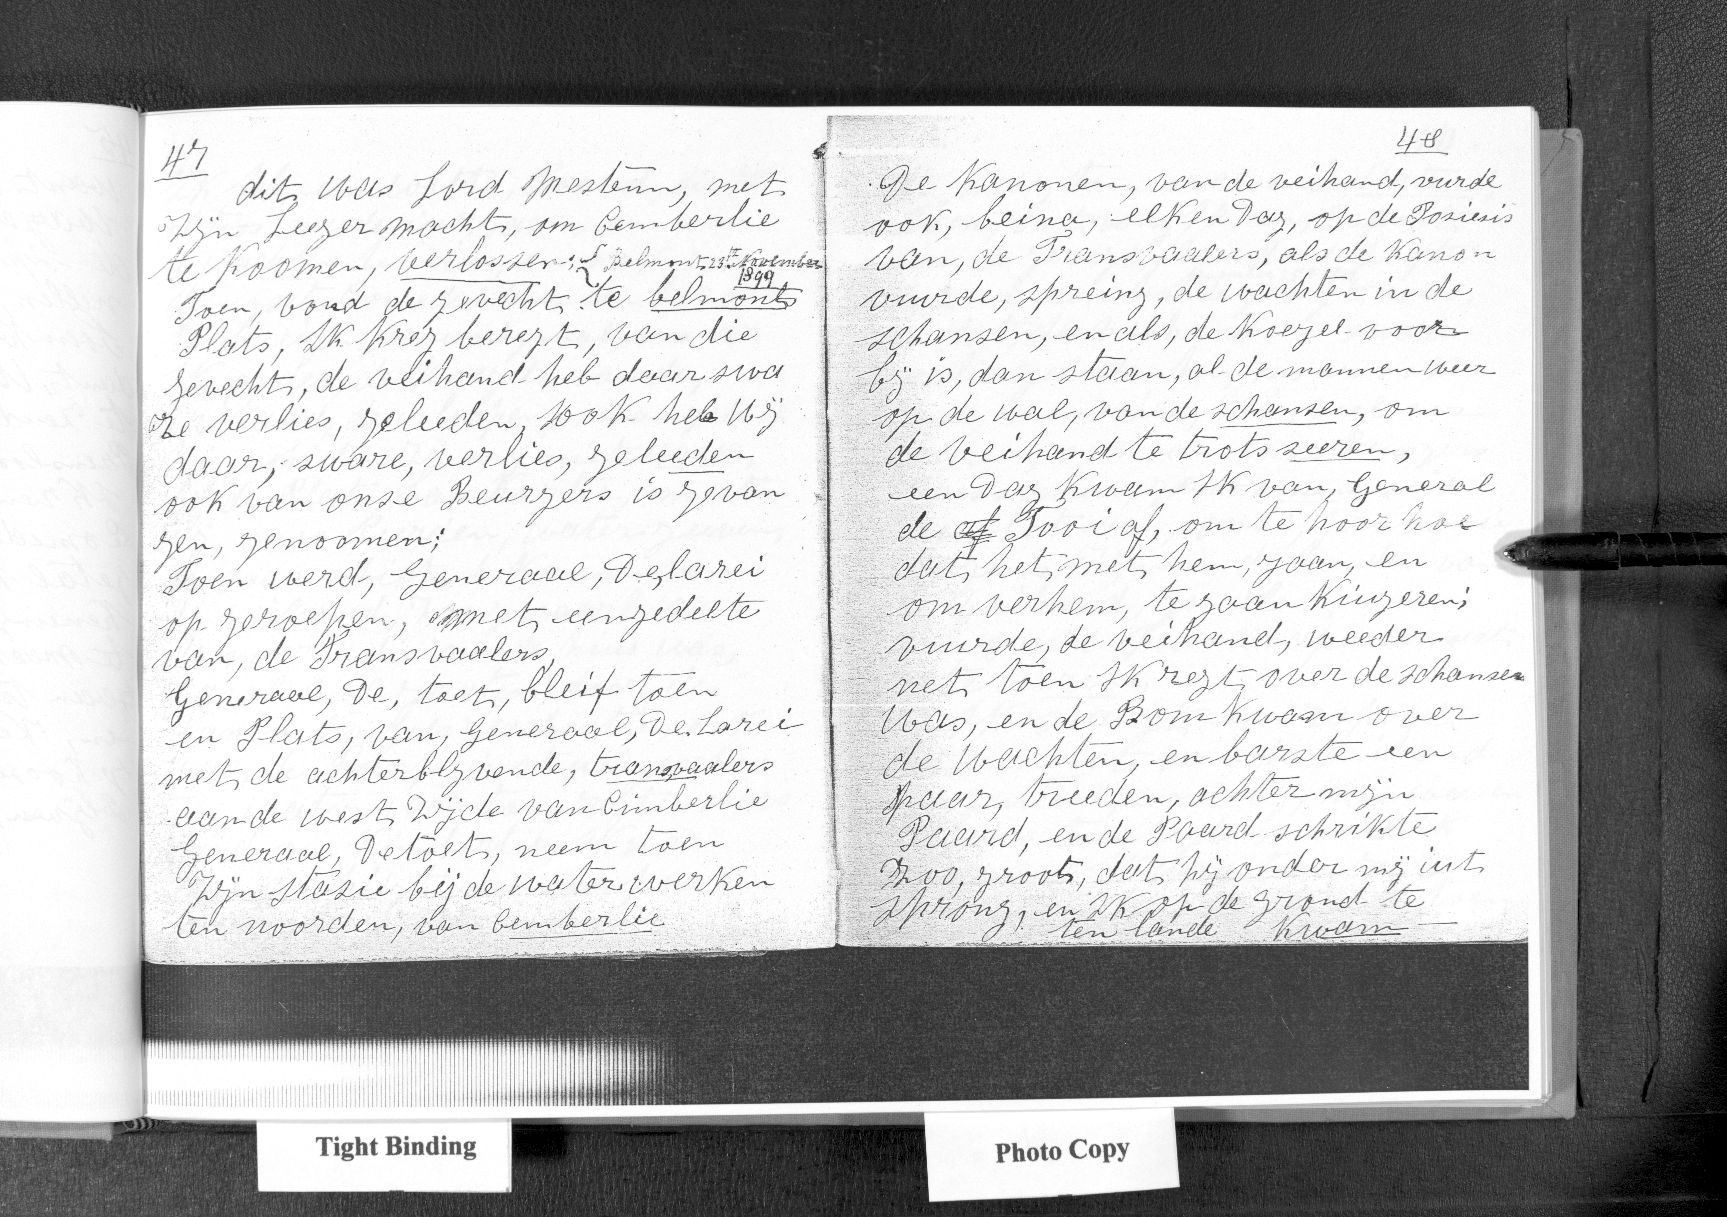 47
dit was Lord Mesteun, met
Zijn Leeger macht, om Cemberlie
te Koomen, verlossen; { Belmont 23te November
1899
Toen, vond de gevecht te belmont
Plats, Ik Kreg beregt, van die
gevecht, de veihand heb daar swa
re verlies, geleeden, sook heb Wij
daar, sware, verlies, geleeden
ook van onse Beurgers is gevan
gen, genoomen;
Toen werd, Generaal, De larei
op geroepen, met eengedeelte
van, de Transvaalers,
Generaal, De, toet, bleif toen
en Plats, van, Generaal, De Larei
met de achterblyvende, transvaalers
aan de west Zijde van Cimberlie
Generaal, De toet, neem toen
Zijn stasie bij de water werken
ten noorden, van Cemberlie
48
De Kanonen, van de veihand, vurde
ook, beina, elken Dag, op de Posiesis
van, de Transvaalers, als de Kanon
vuurde, spreing, de wachten in de
schansen, en als, de Koegel voor
bij is, dan staan, al de mannen weer
op de wal, van de schansen, om
de veihand te trots seeren,
een Dag Kwam Ik van, General
de af Tooi af, om te hoor hoe
dat het met hem, gaan, en
om verhem, te gaan Kiugeren;
vuurde, de veihand, weeder
net toen Ik regt over de schansen
was, en de Bom Kwam over
de Wachten, en barste een
paar, treeden, achter mijn
Paard, en de Paard schrikte
Zoo, groot, dat hij onder mij iut
sprong, en Ik op de grond te
ten lande Kwam
Tight Binding
Photo Copy